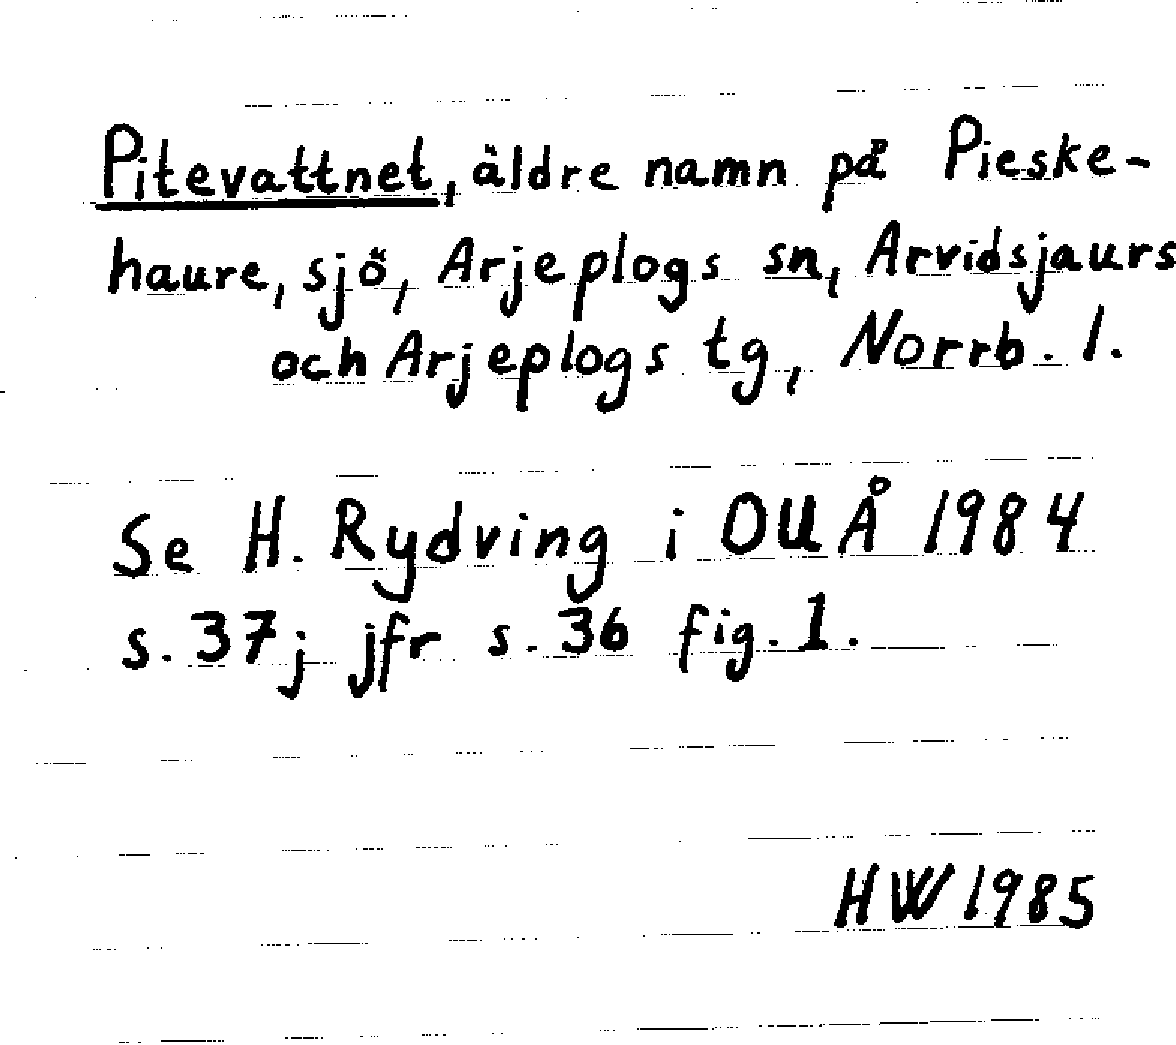 Pitevattnet, äldre namn på Pieske-
haure, sjö, Arjeplogs sn, Arvidsjaurs
och Arjeplogs tg, Norrb. l.
Se H. Rydving i OUÅ 1984
s. 37; jfr s. 36 fig. 1.
HW 1985